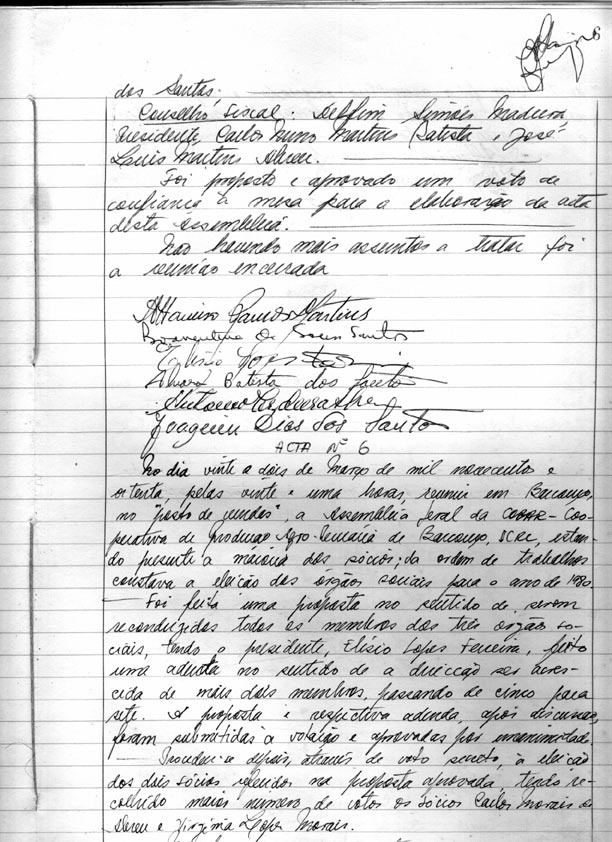 dos Santos.
Conselho Fiscal: Delfim Simões Madeira,
Presidente, Carlos Nuno Martins Batista e José
Luis Martins Abreu.
Foi proposto e aprovado um voto de
confiança à mesa para a elaboração da acta
desta Assembleia.
Não havendo mais assuntos a tratar foi
a reunião encerrada
Ramos Martins
Boaventura de Sousa Santos
Lopes
Alvaro Batista dos Santos
Joaquim Dias dos Santos
ACTA Nº 6
No dia vinte e dois de Março de mil novecentos e
oitenta, pelas vinte e uma horas, reuniu em Barcouço,
no "posto de vendas", a Assembleia Geral da Coo-
perativa de produção Agro-Pecuária de Barcouço, SCRL, estan-
do presente a maioria dos sócios; da ordem de trabalhos
constava a eleição dos órgãos sociais para o ano de 1980.
Foi feita uma proposta no sentido de serem
reconduzidos todos os membros dos três órgão so-
ciais, tendo o presidente, Elísio Lopes Ferreira, feito
uma adenda no sentido de a direcção ser acres-
cida de mais dois membros, passando de cinco para
sete. A proposta e respectiva adenda, após discussão,
foram submetidas a votação e aprovadas por unanimidade.
Procedeu-se depois, através de voto secreto, à eleição
dos dois sócios referidos na proposta aprovada, tendo re-
colhido maior número de votos os sócios Carlos Morais de
Abreu e Virgínia Lopes Morais.